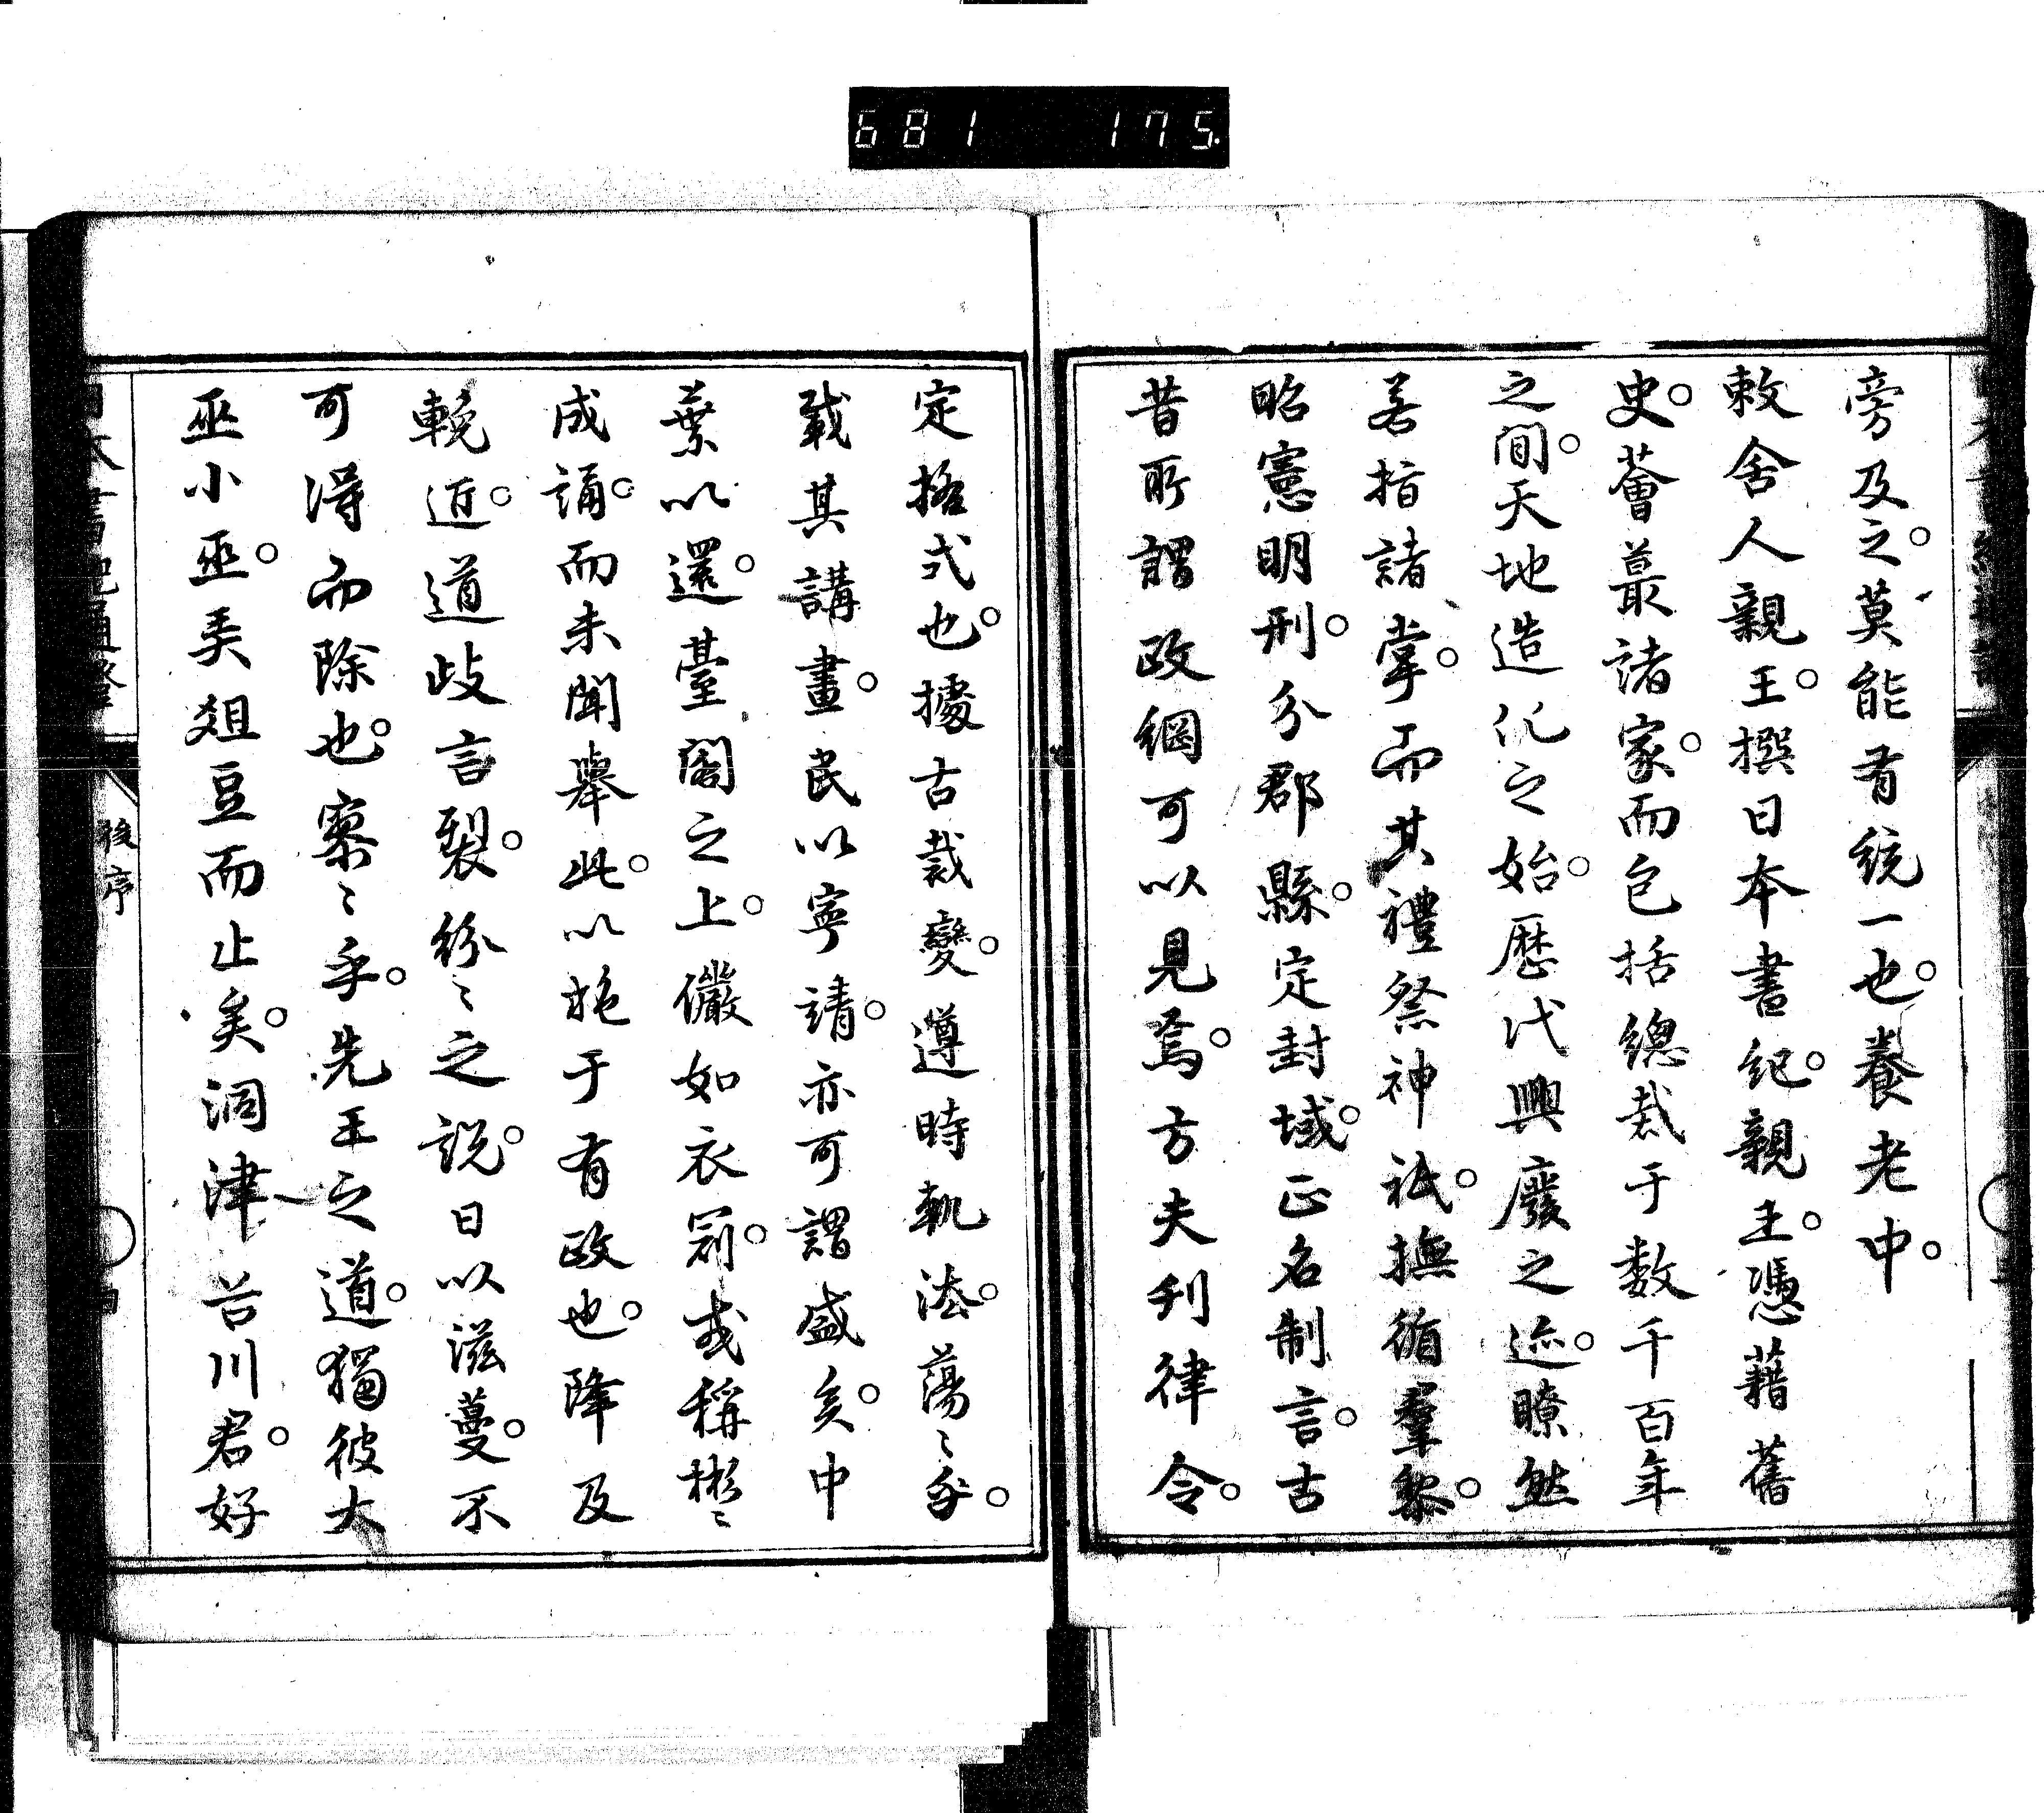 681 175
旁及之。莫能有統一也。養老中。
敕舍人親王。撰日本書紀。親王。憑藉舊
史。薈蕞諸家。而包括總裁于数千百年
之間。天地造化之始。歷代興廢之迹。瞭然
若指諸掌。而其禮祭神祇。撫循羣黎。
昭憲明刑。分郡縣。定封域。正名制言。古
昔所謂政綱可以見焉。方夫刊律令。
定格式也。據古裁變。遵時軌法。蕩〻乎。
載其講畫。民以寧靖。亦可謂盛矣。中
葉以還。臺閣之上。儼如衣冠。或稱彬〻
成誦。而未聞舉此。以施于有政也。降及
輓近。道歧言裂。紛〻之説。日以滋蔓。不
可得而除也。察〻乎。先王之道。獨彼大
巫小巫。奏俎豆而止矣。洞津谷川君。好
後序